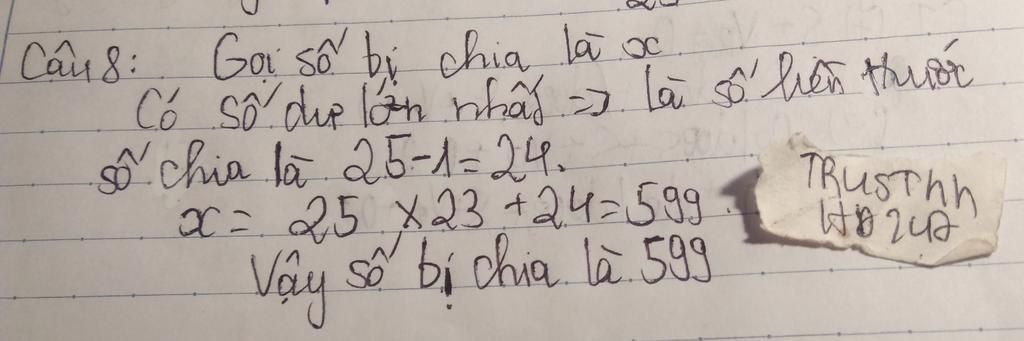 Câu 8: Gọi số bị chia là x
Có số dư lớn nhất => là số liền trước
số chia là 25-1=24.
x = 25 x 23 + 24 = 599.
Vậy số bị chia là 599
TRUSThh
HD24A